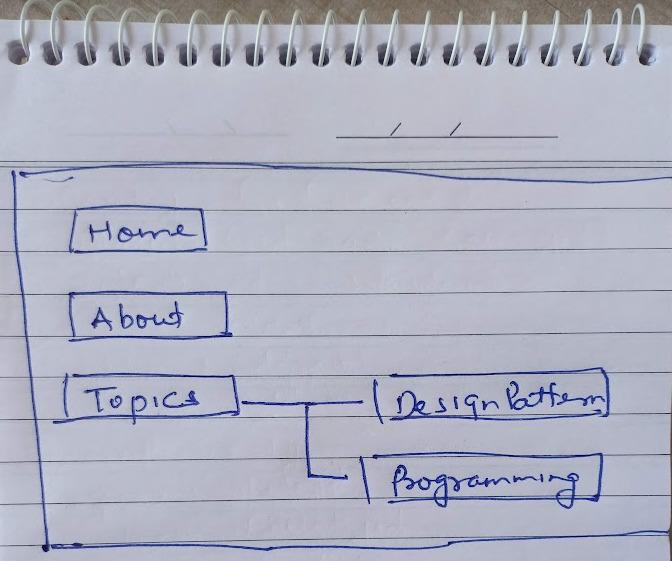 Home
About
Topics
Design Pattern
Programming